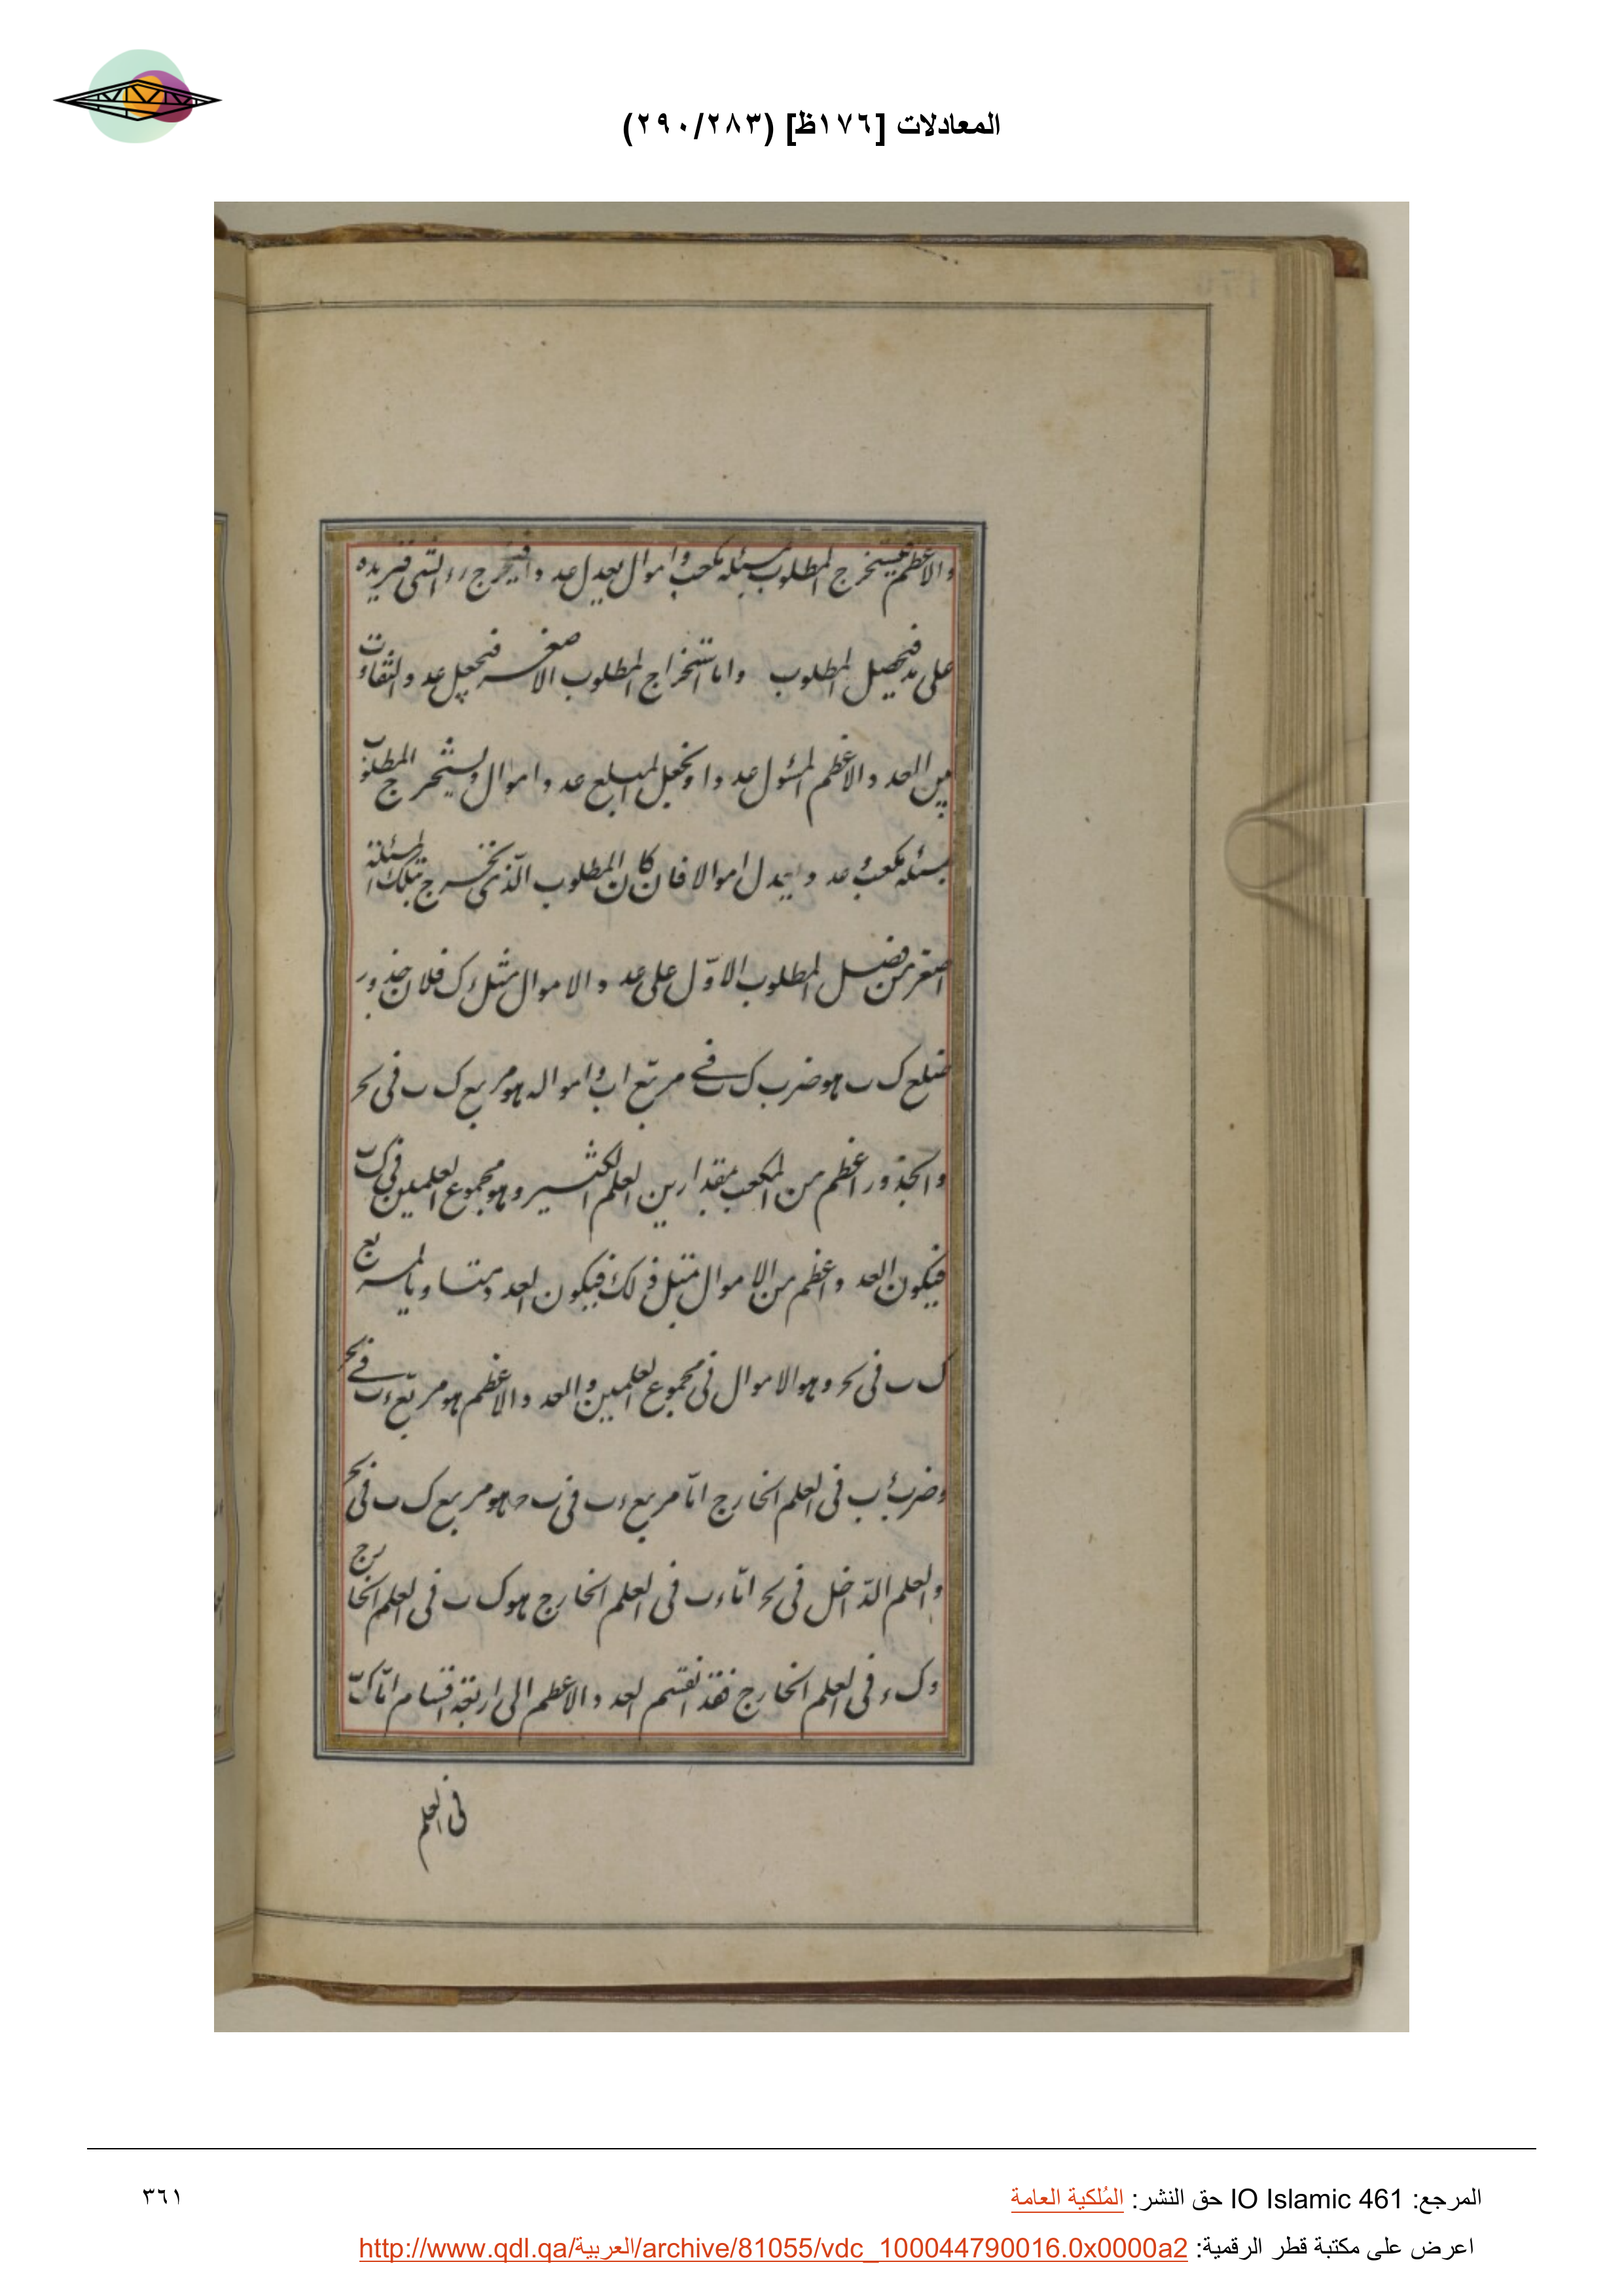 المعادلات [١٧٦ظ] (٢٩٠/٢٨٣)
والاعظم فيستخرج المطلوب بمسئلة مكعب واموال يعدل عددا فيخرج رء الشى فنزيده
على مد فيحصل المطلوب واما استخراج المطلوب الاصغر فنجعل عدد التفاوت
بين العدد والاعظم المسئول عددا ونجعل المبلغ عدد اموال ونستخرج المطلوب
بمسئلة مكعب وعدد يعدل اموالا فان كان المطلوب الذى يخرج بتلك المسئلة
اصغر من فضل المطلوب الاول على عدد الاموال مثل ءك فلان جذور
ضلع ك ب هو ضرب ك ب فى مربع اب وامواله هو مربع ك ب فى بحر
والجذور اعظم من المكعب بمقدارين العلم الكثير وهو مجموع العلمين فى ك ب
فيكون العدد اعظم من الاموال مثل ذلك فيكون العدد متساويا لمربع
ك ب فى بحر وهو الاموال فى مجموع العلمين والعدد الاعظم هو مربع ءب فى بحر
وضرب ءب فى العلم الخارج اما مربع ءب فى ب ح هو مربع ك ب فى بحر
والعلم الداخل فى بحر اما ءب فى العلم الخارج هو ك ب فى العلم الخارج
وك ء فى العلم الخارج فقد انقسم العدد الاعظم الى اربعة اقسام اما ك ب
فى العلم
المرجع: IO Islamic 461 حق النشر: المُلكية العامة
٣٦١
اعرض على مكتبة قطر الرقمية: http://www.qdl.qa/العربية/archive/81055/vdc_100044790016.0x0000a2